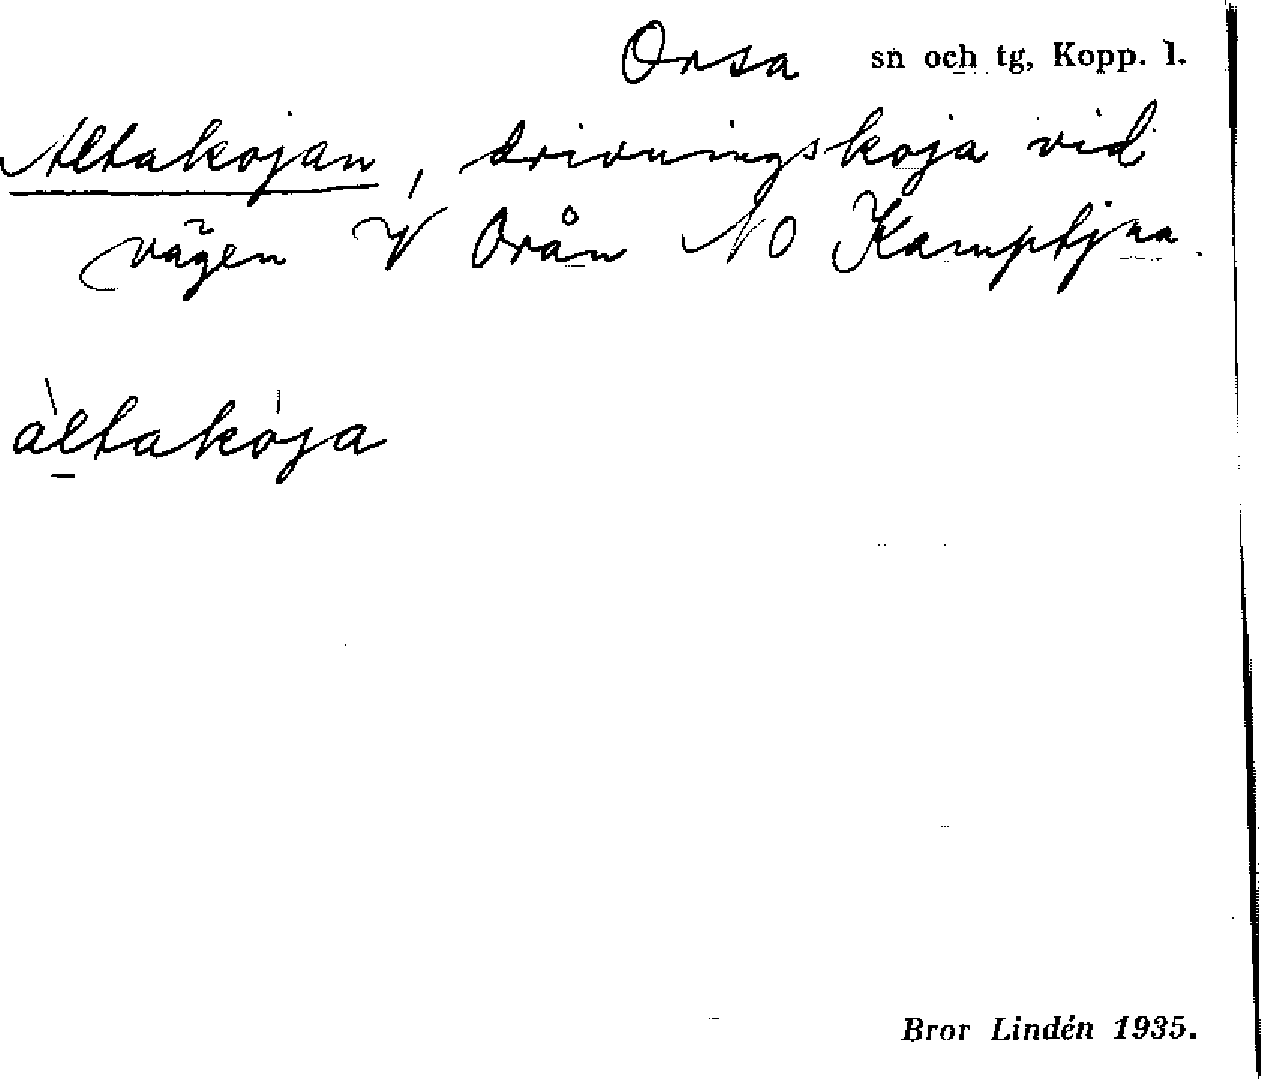 Orsa sn och tg, Kopp. l.
Altakojan, drivningskoja vid
vägen V Orån NO Kamptjnn.
àltakója
Bror Lindén 1935.